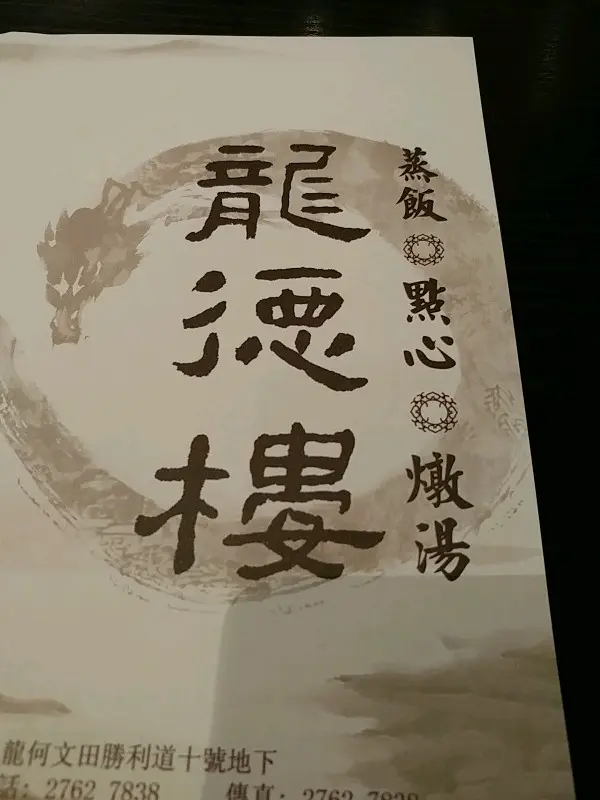 龍德樓
蒸飯 點心 燉湯
龍何文田勝利道十號地下
話: 2762 7838 傳真: 2762 7838